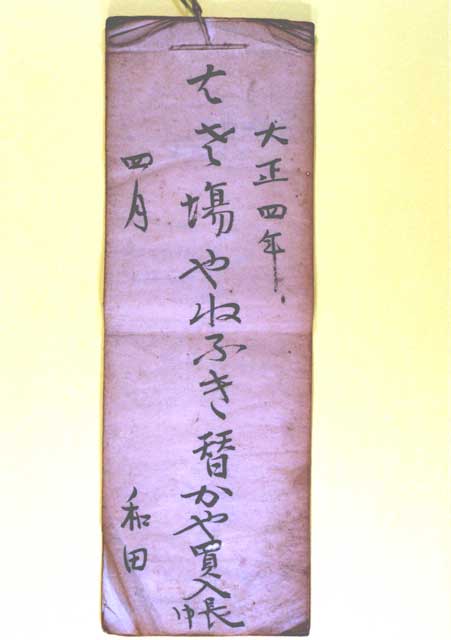 大正四年
塲やねふき替かや買入帳
四月
和田